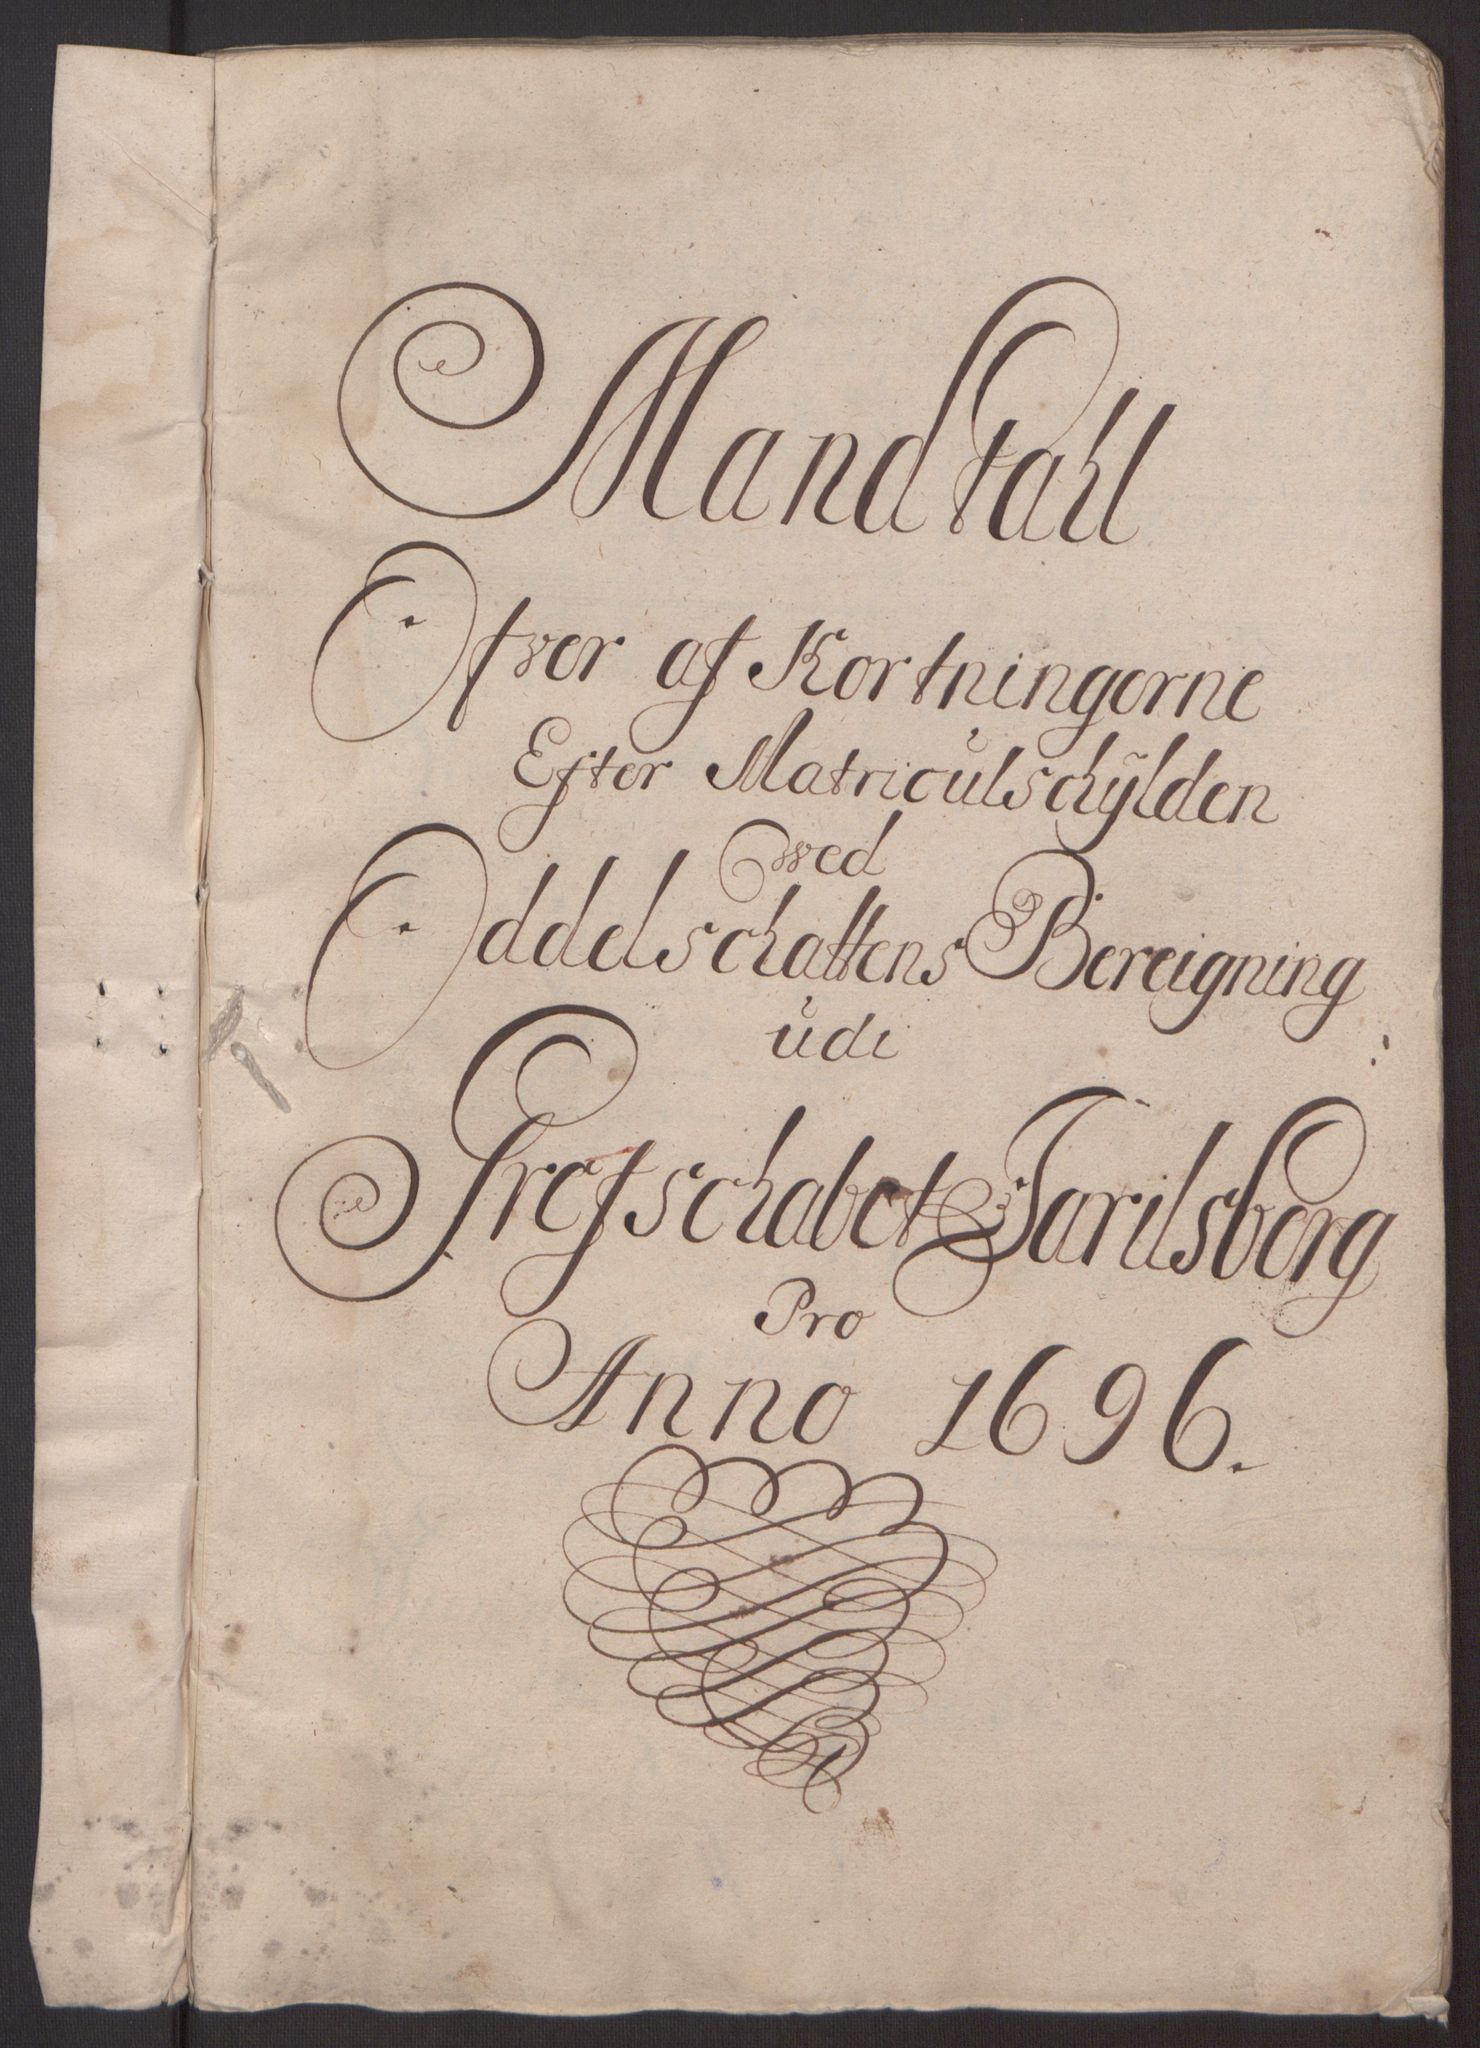 Mandtahl
Ofver af Kortningerne
Efter Matriculschÿlden
ved
Oddelschattens Bereigning
udi
Grefschabet Jarilsberg
Pro
Anno 1696.